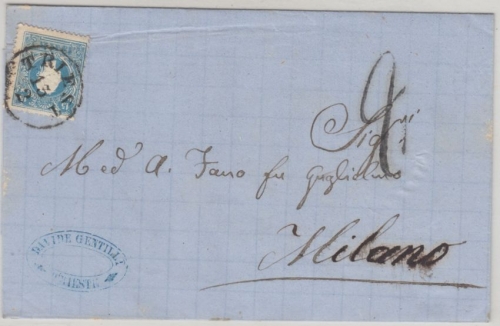 TRIEST
Sigri
M. ed A. Fano fu Guglielmo
Milano
DAVIDE GENTILLI
TRIESTE